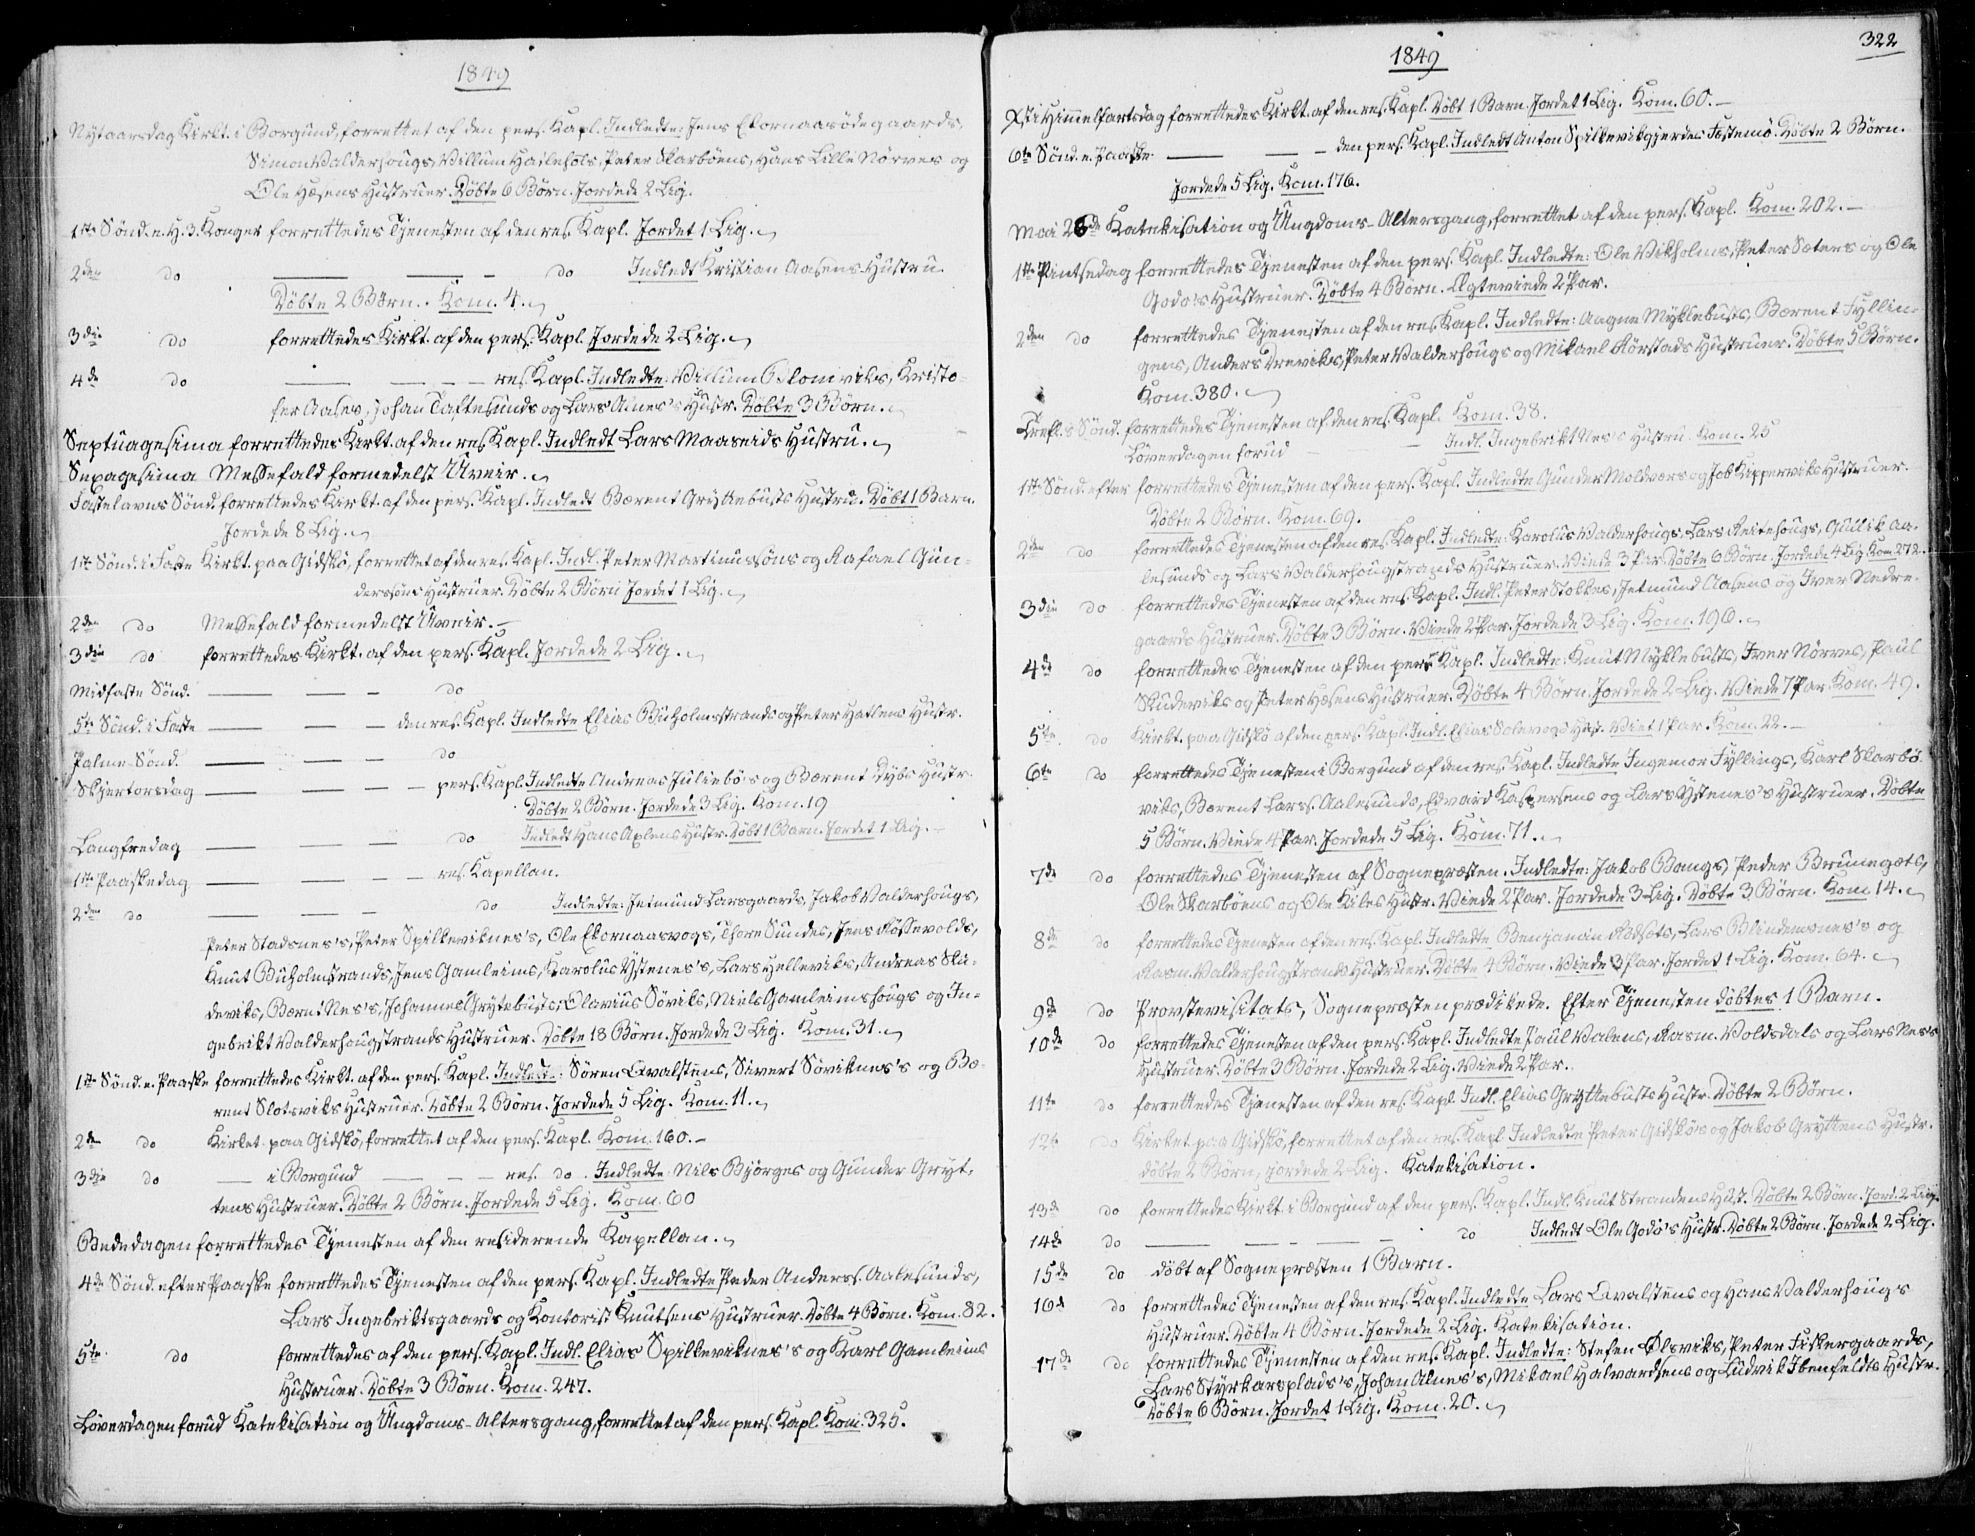 1849
Nytaarsdag Kirkt. i Borgund, forrettet af den pers. Kapl. Indledte: Jens Ekornaasödegaards,
Simon Valderhougs, Villum Hatlehols, Peter Skarböens, Hans Lille Nörves og
Ole Hæsens Hustruer. Döbte 6 Börn. Jordede 2 Lig.
1ste Sönd. e. H. 3. Konger forrettedes Tjenesten af den res. Kapl. Jordet 1 Lig.
2den do — — do Indledt Kristian Aasens Hustru.
Döbte 2 Börn. Kom. 4.
3die do forrettedes Kirkt. af den pers. Kapl. Jordede 2 Lig.
4de do — — — res. Kapl. Indledte: Villum Flomviks, Kristo-
fer Aases, Johan Taftesunds og Lars Alnes's Hustr. Döbte 3 Börn.
Septuagesima forrettedes Kirkt. af den res. Kapl. Indledt Lars Maaseids Hustru.
Sexagesima Messefald formedelst Uveir.
Fastelavns Sönd. forrettedes Kirkt. af den pers. Kapl. Indledt Bærent Gryttebusts Hustru. Döbt 1 Barn.
Jordede 8 Lig.
1ste Sönd. i Faste Kirkt. paa Gidskö, forrettet af den res. Kapl. Indl. Peter Martinussöns og Rafael Gun-
dersöns Hustruer. Döbte 2 Börn Jordet 1 Lig.
2den do Messefald formedelst Uveir.
3die do forrettedes Kirkt. af den pers. Kapl. Jordede 2 Lig.
Midfaste Sönd. — — — do
5te Sönd. i Faste — — — den res. Kapl. Indledte Elias Buholmstrands og Peter Hatlens Hustr.
Palme-Sönd. — — — do
Skjertorsdag — — — — pers. Kapl. Indledte Andreas Juliebö's og Bærent Dybs Hustr.
Döbte 2 Börn. Jordede 3 Lig. Kom. 19
Langfredag — — — do Indledt Hans Aplens Hustr. Döbt 1 Barn. Jordet 1 Lig.
1ste Paaskedag — — — — res. Kapellan.
2den do — — — do Indledte: Jetmund Larsgaards, Jakob Valderhougs,
Peter Stadsnes's, Peter Spilkeviknes's, Ole Ekornaasvogs, Thore Sundes, Jens Rössevolds,
Knut Buholmstrands, Jens Gamleims, Karolus Ystenes's, Lars Helleviks, Andreas Sku-
deviks, Bærnt Nes's, Johannes Grytebusts, Olavius Söviks, Niels Gamleimshougs og In-
gebrikt Valderhougstrands Hustruer. Döbte 18 Börn. Jordede 3 Lig. Kom. 31.
1ste Sönd. e. Paaske forrettedes Kirkt. af den pers. Kapl. Indledte: Sören Qvalsteens, Sivert Söviknes's og Bæ-
rent Slotsviks Hustruer. Döbte 2 Börn. Jordede 5 Lig. Kom. 11.
2den do Kirket. paa Gidskö, forrettet af den pers. Kapl. Kom. 160.
3die do — i Borgund — — — res. do. Indledte Nils Bjørges og Gunder Gryt-
tens Hustruer. Döbte 2 Börn. Jordede 5 Lig. Kom. 60
Bededagen forrettedes Tjenesten af den residerende Kapellan.
4de Sönd. efter Paaske forrettedes Tjenesten af den pers. Kapl. Indledte Peder Anderss. Aalesunds,
Lars Ingebriktsgaards og Kontorist Knutsens Hustruer. Döbte 4 Börn. Kom. 82.
5te do forrettedes af den pers. Kapl. Indl. Elias Spilkeviknes's og Karl Gamleims
Hustruer. Döbte 3 Börn. Kom. 247.
Löverdagen forud Katekisation og Ungdoms-Altersgang, forrettet af den pers. Kapl. Kom. 325.
322
1849
Xsti Himmelfartsdag forrettedes Kirkt. af den res. Kapl. Döbt 1 Barn. Jordet 1 Lig. Kom. 60.
6te Sönd. e. Paaske — — — den pers. Kapl. Indledt Anton Spilkevikgjerdes Festemö. Döbte 2 Börn.
Jordede 5 Lig. Kom. 176.
Mai 26de Katekisation og Ungdoms-Altersgang, forrettet af den pers. Kapl. Kom. 202.
1ste Pintsedag forrettedes Tjenesten af den pers. Kapl. Indledte: Ole Vikholms, Peter Sæters og Ole
Godö's Hustruer. Döbte 4 Börn. Ægteviede 2 Par.
2den do forrettedes Tjenesten af den res. Kapl. Indledte: Aagne Myklebusts, Bærent Fyllin-
gens, Anders Dreviks, Peter Valderhougs og Mikael Rörstads Hustruer. Döbte 5 Börn.
Kom. 380.
Trefl.s Sönd. forrettedes Tjenesten af den res. Kapl. Kom. 38.
Löverdagen forud — — Indl. Ingebrikt Nes's Hustru. Kom. 25
1ste Sönd. efter forrettedes Tjenesten af den pers. Kapl. Indledte Gunder Moldværs og Job Kipperviks Hustruer.
Döbte 2 Börn. Kom. 69.
2den do forrettedes Tjenesten af den res. Kapl. Indledte: Karolus Valderhougs, Lars Reitehougs, Gulik Aa-
lesunds og Lars Valderhougstrands Hustruer. Viede 3 Par. Döbte 6 Börn. Jordede 4 Lig. Kom. 272.
3die do forrettedes Tjenesten af den res. Kapl. Indl. Peter Stokkes, Jetmund Aasens og Iver Nedre-
gaards Hustruer. Döbte 3 Börn. Viede 2 Par. Jordede 3 Lig. Kom. 196.
4de do forrettedes Tjenesten af den pers. Kapl. Indledte: Knut Myklebusts, Iver Nörves, Paul
Skudeviks og Peter Hæsens Hustruer. Döbte 4 Börn. Jordede 2 Lig. Viede 7 Par. Kom. 49.
5te do Kirkt. paa Gidskö af den pers. Kapl. Indl. Elias Solevogs Hust. Viet 1 Par. Kom. 22.
6te do forrettedes Tjenesten i Borgund af den res. Kapl. Indledte Ingemor Fyllings, Karl Skarbö-
viks, Bærent Larss. Aalesunds, Edvard Kaspersens og Lars Ystenes's Hustruer. Döbte
5 Börn. Viede 4 Par. Jordede 5 Lig. Kom. 71.
7de do forrettedes Tjenesten af Sognepræsten. Indledte: Jakob Bangs, Peder Brunegots,
Ole Skarböens og Ole Kiles Hustr. Viede 2 Par. Jordede 3 Lig. Döbte 3 Börn. Kom 14.
8de do forrettedes Tjenesten af den res. Kapl. Indledte Benjamin Rødsets, Lars Blindemsnes's og
Rasm. Valderhougstrands Hustruer. Döbte 4 Börn. Viede 3 Par. Jordet 1 Lig. Kom. 64.
9de do Provstevisitats, Sognepræsten prædikede. Efter Tjenesten döbtes 1 Barn.
10de do forrettedes Tjenesten af den pers. Kapl. Indledte Paul Valens, Rasm. Voldsdals og Lars Nes's
Hustruer. Döbte 3 Börn. Jordede 2 Lig. Viede 2 Par.
11te do forrettedes Tjenesten af den res. Kapl. Indl. Elias Gryttebusts Hustr. Döbte 2 Börn.
12te do Kirket paa Gidskö, forrettet af den res. Kapl Indledte Peter Gidskös og Jakob Gryttens Hustr.
döbte 2 Börn, jordede 2 Lig. Katekisation.
13de do forrettedes Kirkt. i Borgund af den pers. Kapl. Indl. Knut Strandens Hust. Döbte 2 Börn. Jord. 2 Lig.
14de do — — — — do Indledt Ole Godö's Hustr. Döbte 2 Börn. Jordede 2 Lig.
15de do döbt af Sognepræsten 1 Barn.
16de do forrettedes Tjenesten af den res. Kapl. Indledte Lars Qvalsteens og Hans Valderhoug's
Hustruer. Döbte 4 Börn. Jordede 2 Lig. Katekisation.
17de do forrettedes Tjenesten af den res. Kapl. Indledte: Stefen Ölsviks, Peter Fiskergaards,
Lars Styrkarsplads's, Johan Alnes's, Mikael Halvardsens og Ludvik Ibenfeldts Hustr.
Döbte 6 Börn. Jordet 1 Lig. Kom. 20.